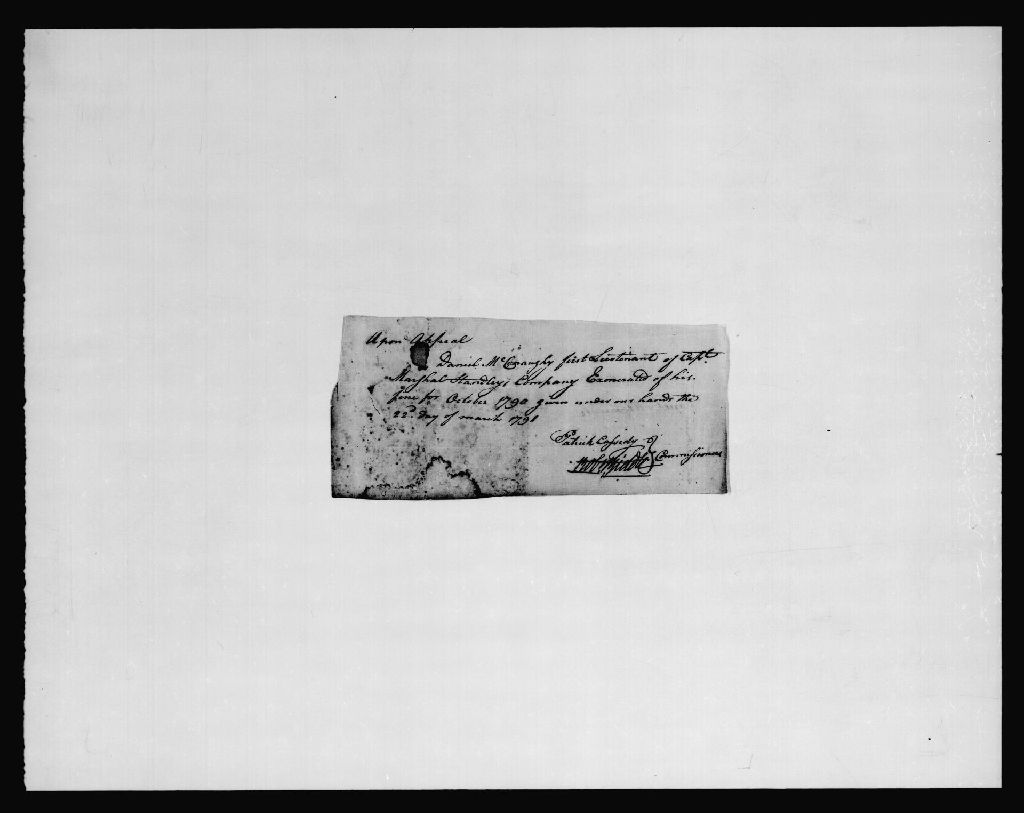 Upon Appeal
Daniel McConaughy first Lieutenant of Capt.
Marshal Handleys Company Exonerated of his
fine for October 1790 given under our hands the
22d day of march 1791
Patrick Cassedy
Commissioners